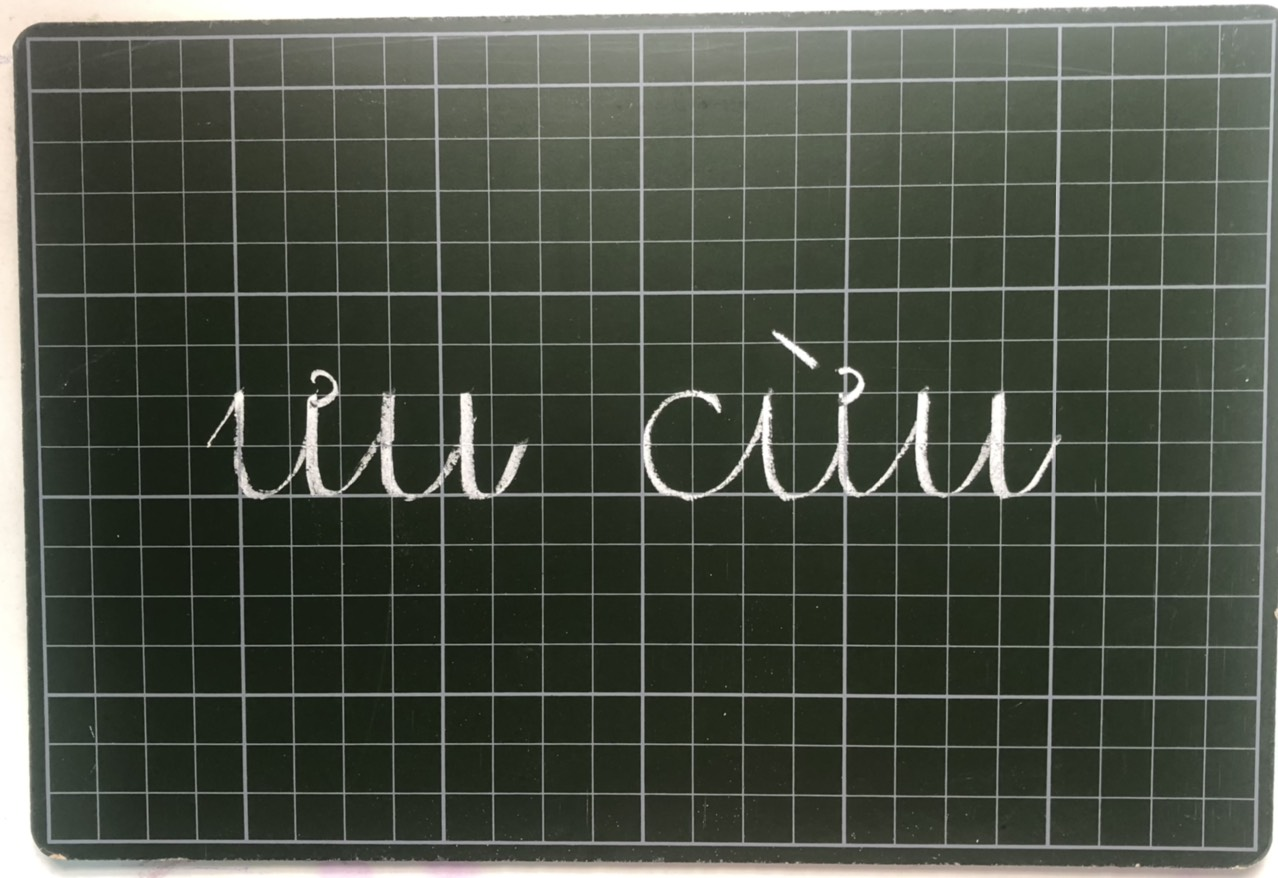 ưu cừu